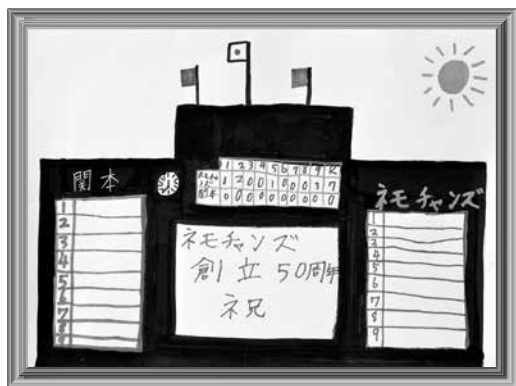 関本
1
2
3
4
5
6
7
8
9
1 2 3 4 5 6 7 8 9
ネモチャンズ 1 2 0 0 1 0 0 0 3 7
関本 0 0 0 0 0 0 0 0 0 0
ネモチャンズ
創立50周年
祝
ネモチャンズ
1
2
3
4
5
6
7
8
9